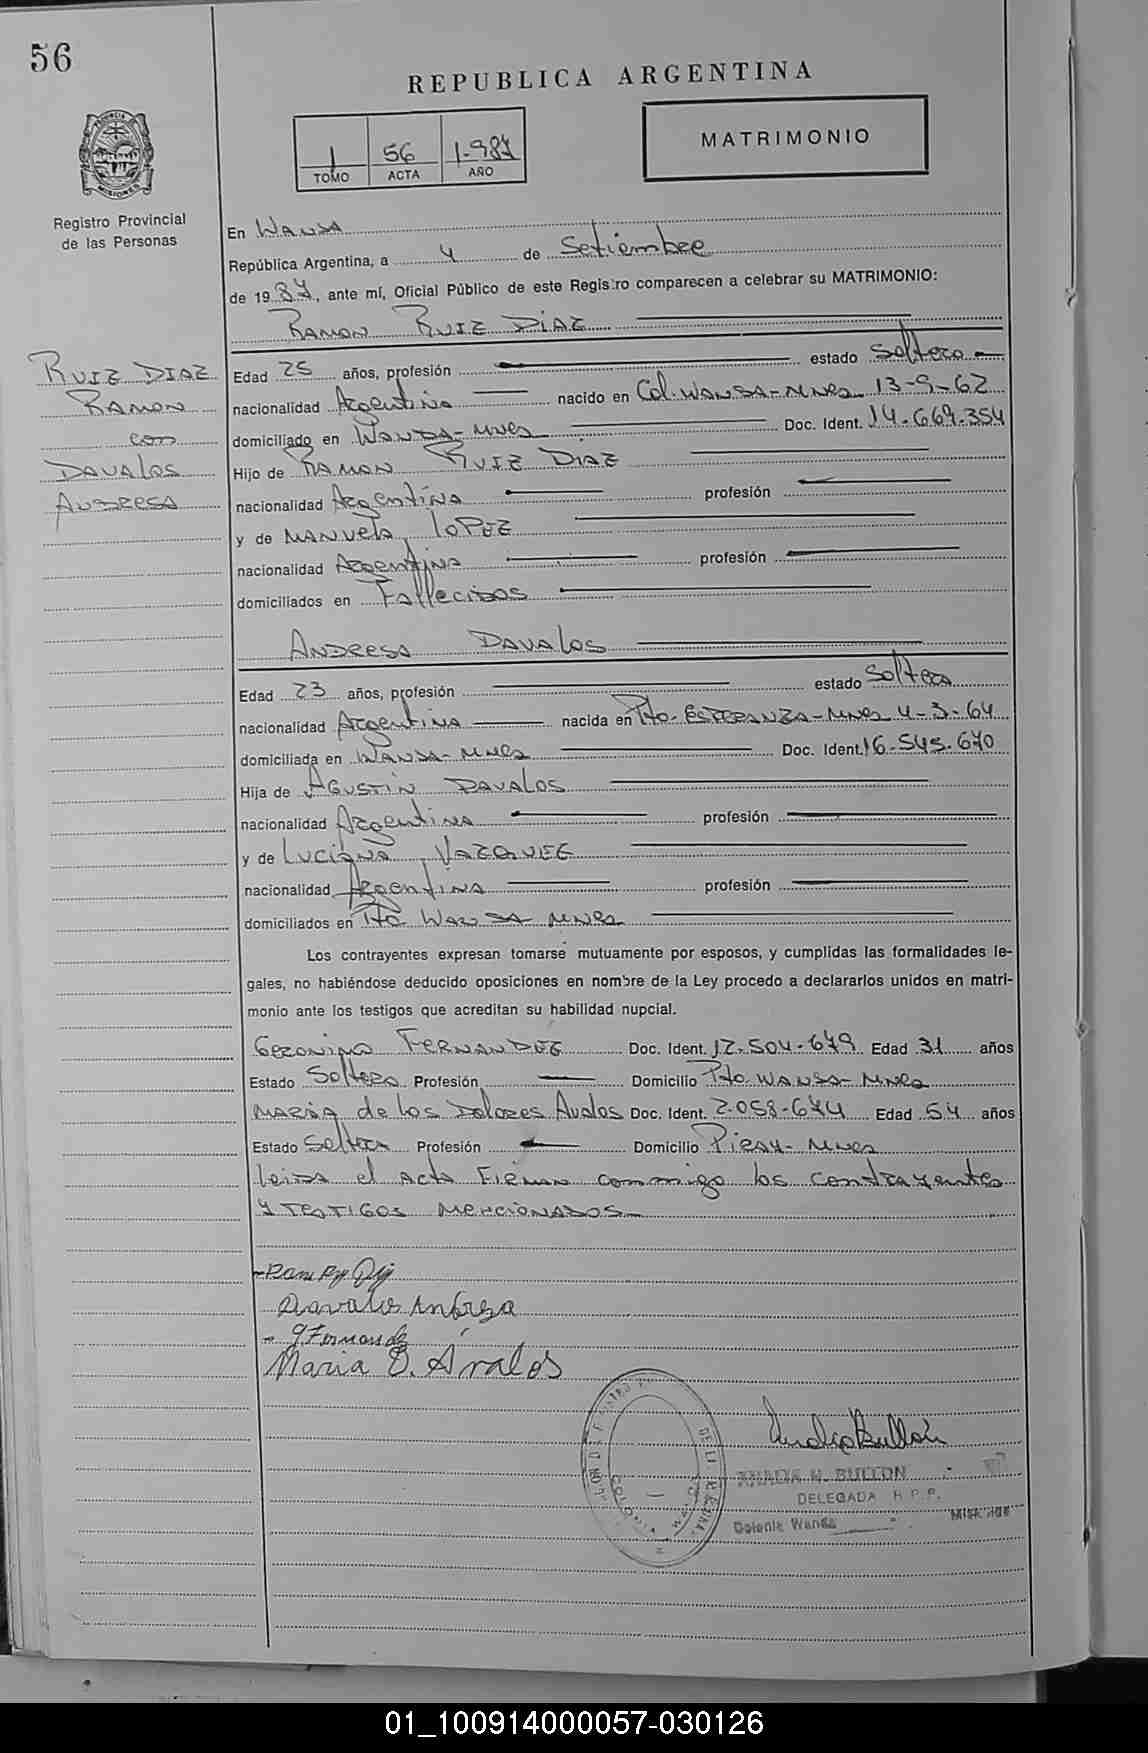 56
REPUBLICA ARGENTINA
MATRIMONIO
1 56 1.987
TOMO ACTA AÑO
Registro Provincial
de las Personas
En WANDA
República Argentina, a 4 de Setiembre
de 1987, ante mí, Oficial Público de este Registro comparecen a celebrar su MATRIMONIO:
RAMON RUIZ DIAZ
RUIZ DIAZ
RAMON
con
DAVALOS
ANDRESA
Edad 25 años, profesión estado Soltero
nacionalidad Argentina nacido en Col. WANDA-MNES 13-9-62
domiciliado en WANDA-MNES Doc. Ident. 14.669.354
Hijo de RAMON RUIZ DIAZ
nacionalidad Argentina profesión
y de MANUELA LOPEZ
nacionalidad Argentina profesión
domiciliados en Fallecidos
ANDRESA DAVALOS
Edad 23 años, profesión estado Soltera
nacionalidad Argentina nacida en Pto. ESPERANZA-MNES 4-3-64
domiciliada en WANDA-MNES Doc. Ident. 16.545.670
Hija de AGUSTIN DAVALOS
nacionalidad Argentina profesión
y de LUCIANA VAZQUEZ
nacionalidad Argentina profesión
domiciliados en Pto WANDA MNES
Los contrayentes expresan tomarse mutuamente por esposos, y cumplidas las formalidades le-
gales, no habiéndose deducido oposiciones en nombre de la Ley procedo a declararlos unidos en matri-
monio ante los testigos que acreditan su habilidad nupcial.
GERONIMO FERNANDEZ Doc. Ident. 12.504.679 Edad 31 años
Estado Soltero Profesión Domicilio Pto. WANDA-MNES
MARIA de los Dolores Avalos Doc. Ident. 2.058.674 Edad 54 años
Estado Soltera Profesión Domicilio PIRAY-MNES
Leida el Acta FIRMAN conmigo los contrayentes
y TESTIGOS MENCIONADOS
Davalos Andresa
G Fernandez
Maria D. Avalos
ANALIA N. BULLON
DELEGADA R.P.P.
Colonia Wanda MISIONES
01_100914000057-030126